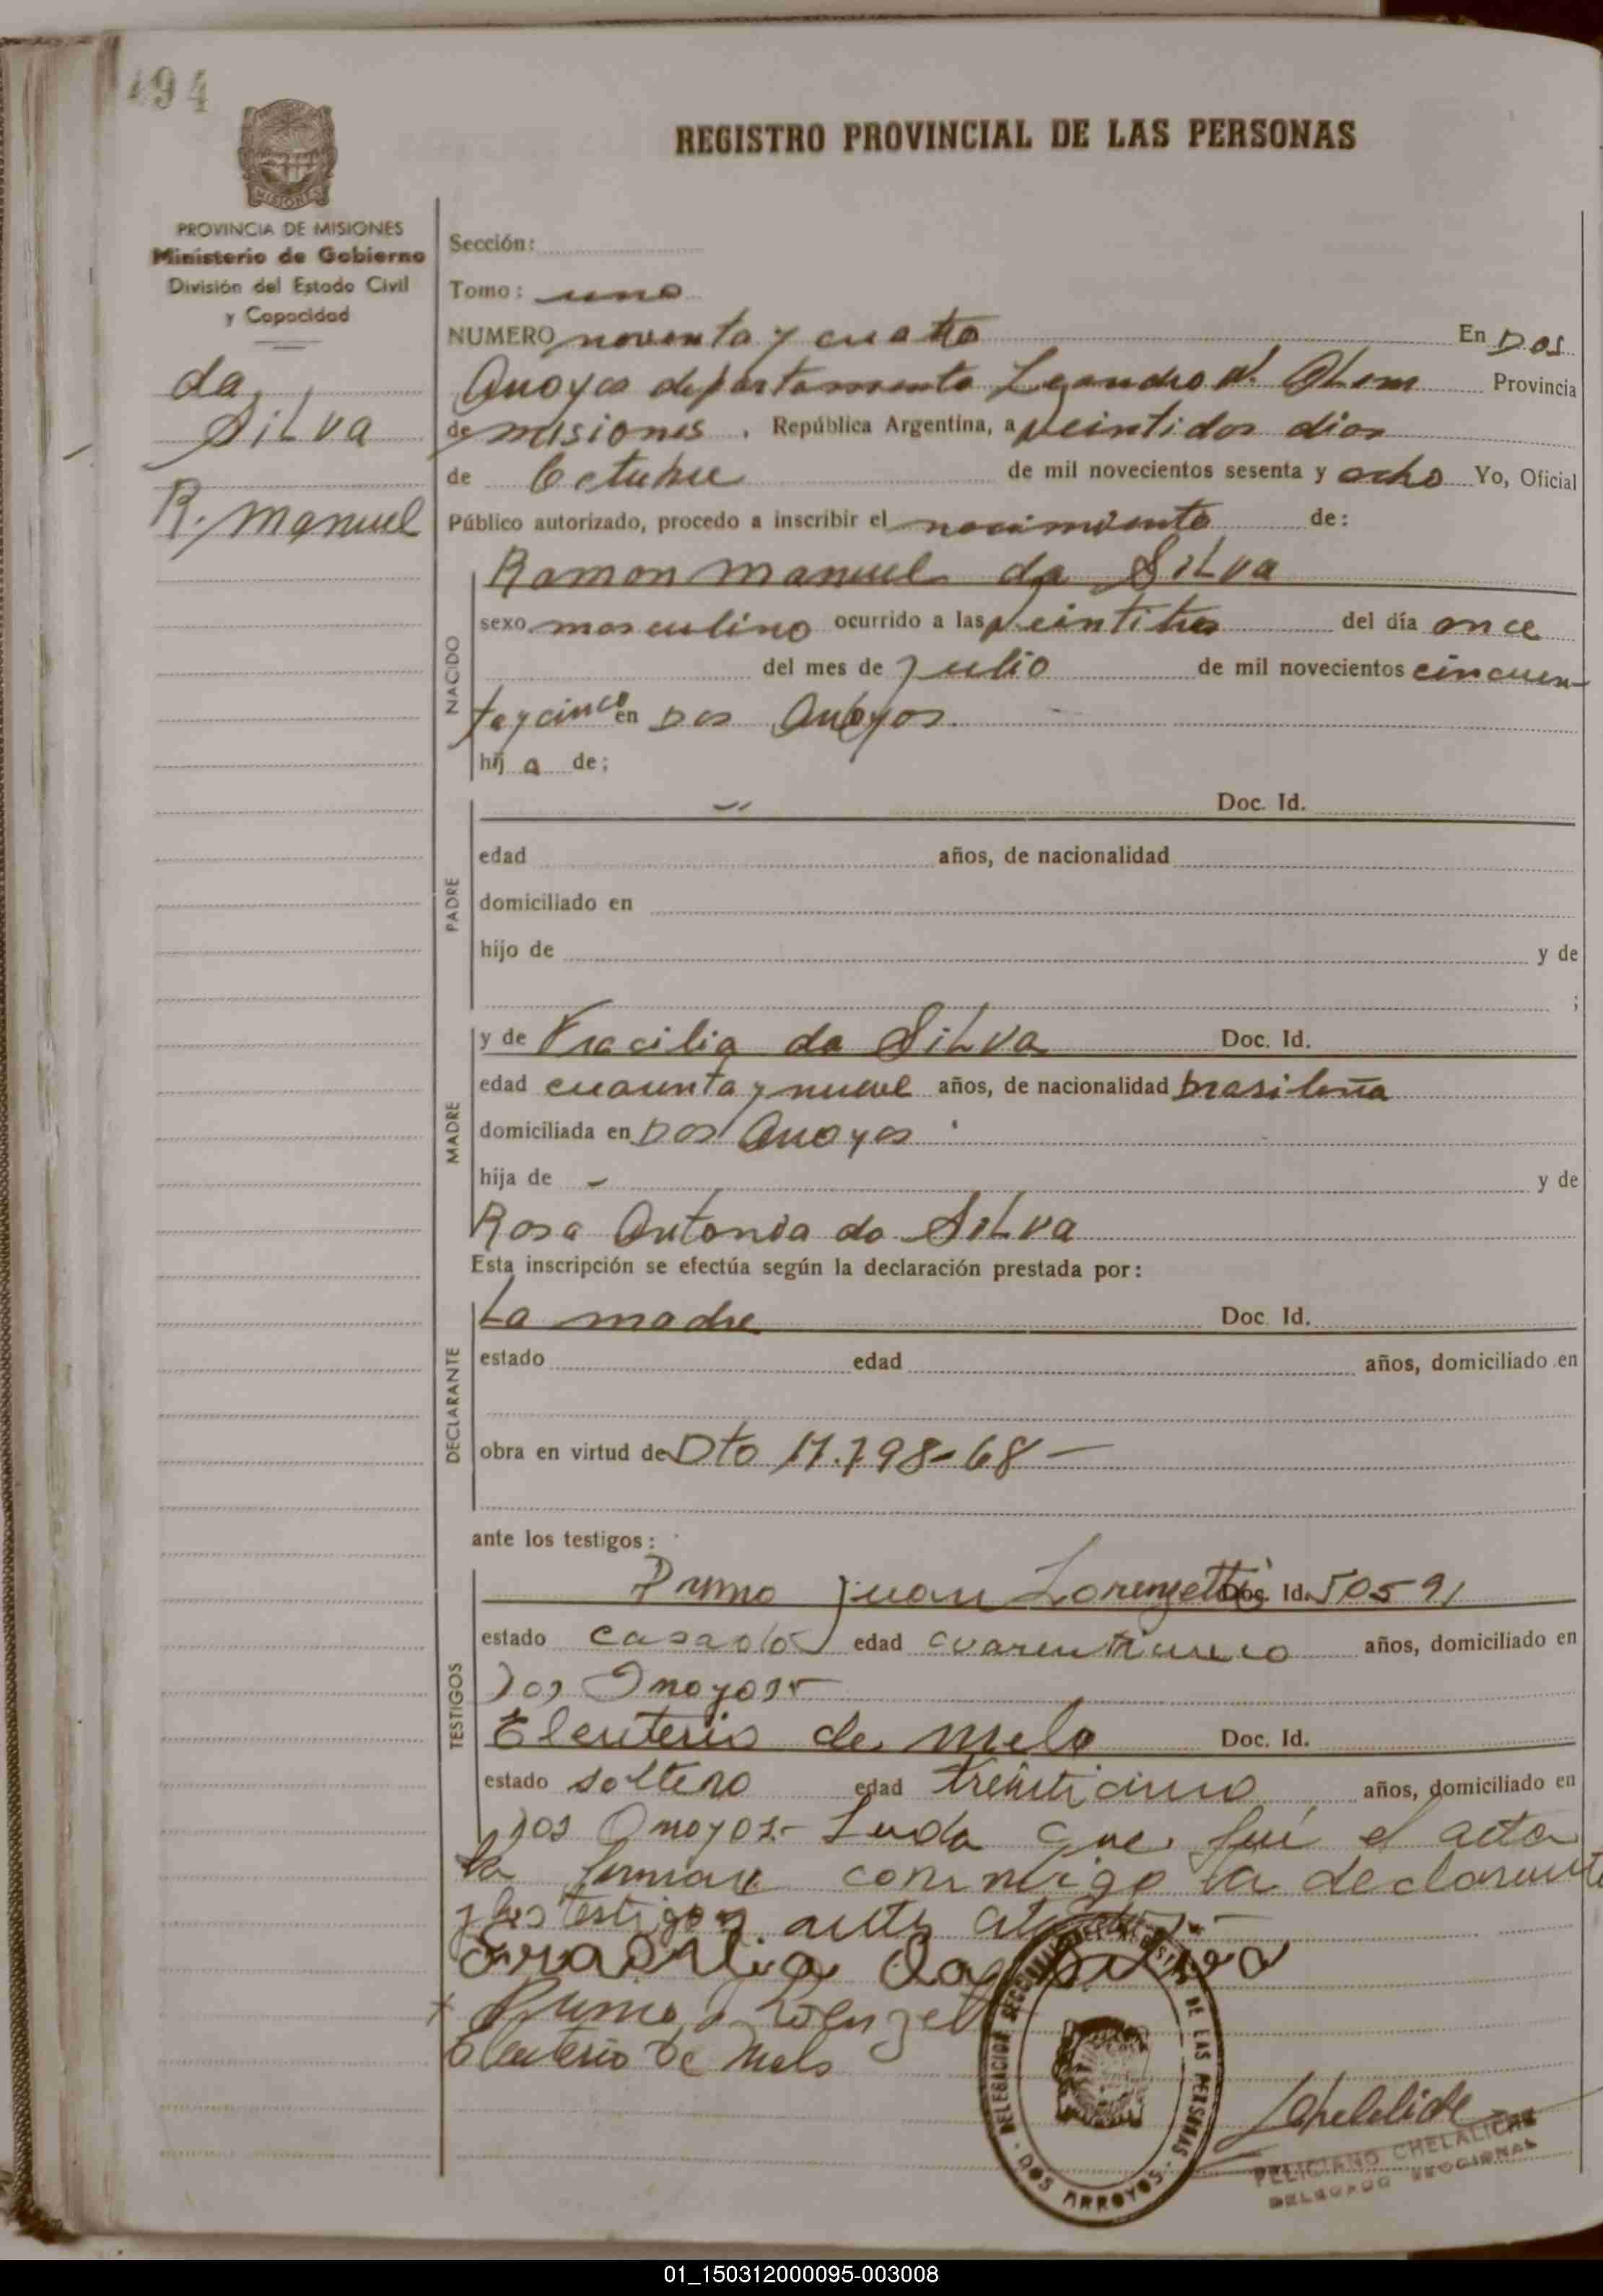 194
REGISTRO PROVINCIAL DE LAS PERSONAS
MISIONES
PROVINCIA DE MISIONES
Ministerio de Gobierno
División del Estado Civil
y Capacidad
da
Silva
R. Manuel
Sección:
Tomo: uno
NUMERO noventa y cuatro En Dos
Arroyos departamento Leandro N. Alem Provincia
de misiones, República Argentina, a veintidos dias
de Octubre de mil novecientos sesenta y ocho Yo, Oficial
Público autorizado, procedo a inscribir el nacimiento de:
NACIDO
Ramon Manuel da Silva
sexo masculino ocurrido a las veintitres del día once
del mes de Julio de mil novecientos cincuen-
ta y cinco en Dos Arroyos.
hij o de;
PADRE
Doc. Id.
edad años, de nacionalidad
domiciliado en
hijo de y de
;
MADRE
y de da Silva Doc. Id.
edad cuarenta y nueve años, de nacionalidad brasileña
domiciliada en Dos Arroyos
hija de - y de
Rosa Antonia da Silva
Esta inscripción se efectúa según la declaración prestada por:
DECLARANTE
La madre Doc. Id.
estado edad años, domiciliado en
obra en virtud de Dto 17.798-68-
ante los testigos:
TESTIGOS
Primo Juan Lorenzetti Doc. Id. 50591
estado casado edad años, domiciliado en
Dos Arroyos-
Eleuterio de Melo Doc. Id.
estado soltero edad treinticinco años, domiciliado en
Dos Arroyos- Leida que fué el acta
la firman conmigo la declarante
y los testigos
da Silva
Primo J. Lorenzetti
Eleuterio de Melo
DELEGACION SECCIONAL DE LAS PERSONAS
DOS ARROYOS
Chelaliche
FELICIANO CHELALICHE
DELEGADO SECCIONAL
01_150312000095-003008